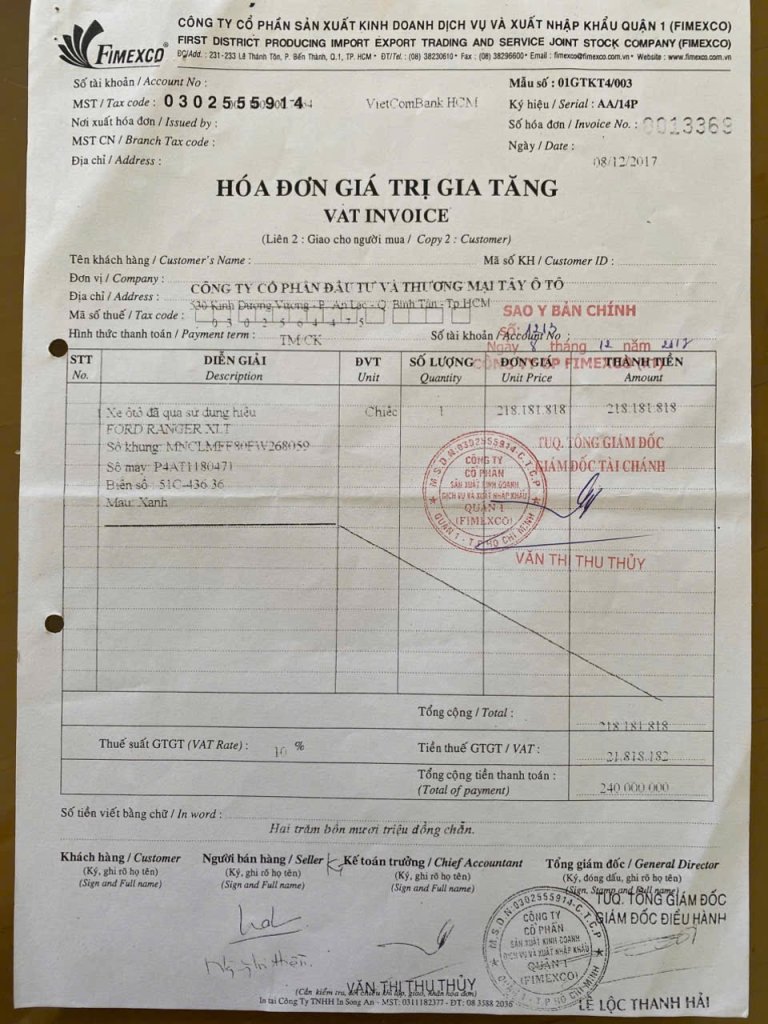 FIMEXCO®
CÔNG TY CỔ PHẦN SẢN XUẤT KINH DOANH DỊCH VỤ VÀ XUẤT NHẬP KHẨU QUẬN 1 (FIMEXCO)
FIRST DISTRICT PRODUCING IMPORT EXPORT TRADING AND SERVICE JOINT STOCK COMPANY (FIMEXCO)
ĐC/Add. : 231-233 Lê Thánh Tôn, P. Bến Thành, Q.1, TP. HCM • ĐT/Tel. : (08) 38230610 • Fax : (08) 38296600 • Email : fimexco@fimexco.com.vn • Website : www.fimexco.com.vn
Số tài khoản / Account No :
Mẫu số : 01GTKT4/003
MST / Tax code : 0302555914
VietComBank HCM
Ký hiệu / Serial : AA/14P
Nơi xuất hóa đơn / Issued by :
Số hóa đơn / Invoice No. : 0013369
MST CN / Branch Tax code :
Ngày / Date :
Địa chỉ / Address :
08/12/2017
HÓA ĐƠN GIÁ TRỊ GIA TĂNG
VAT INVOICE
(Liên 2 : Giao cho người mua / Copy 2 : Customer)
Tên khách hàng / Customer's Name :
Mã số KH / Customer ID :
Đơn vị / Company :
CÔNG TY CỔ PHẦN ĐẦU TƯ VÀ THƯƠNG MẠI TÂY Ô TÔ
Địa chỉ / Address :
530 Kinh Dương Vương - P. An Lạc - Q. Bình Tân - Tp.HCM
SAO Y BẢN CHÍNH
Mã số thuế / Tax code :
Số: 1213
Hình thức thanh toán / Payment term :
TM/CK
Số tài khoản / Account No :
Ngày 8 tháng 12 năm 2017
STT
No.
DIỄN GIẢI
Description
ĐVT
Unit
SỐ LƯỢNG
Quantity
ĐƠN GIÁ
Unit Price
THÀNH TIỀN
Amount
Xe ôtô đã qua sử dụng hiệu
Chiếc
1
218.181.818
218.181.818
FORD RANGER XLT
Số khung: MNCLMFF80FW268059
Số máy: P4AT1180471
Biển số : 51C-436.36
Màu: Xanh
TUQ. TỔNG GIÁM ĐỐC
GIÁM ĐỐC TÀI CHÁNH
M.S.D.N:0302555914-C.T.C.P
CÔNG TY
CỔ PHẦN
SẢN XUẤT KINH DOANH
DỊCH VỤ VÀ XUẤT NHẬP KHẨU
QUẬN 1
(FIMEXCO)
QUẬN 1 - T.P HỒ CHÍ MINH
VĂN THỊ THU THỦY
Tổng cộng / Total :
218.181.818
Thuế suất GTGT (VAT Rate) : 10 %
Tiền thuế GTGT / VAT :
21.818.182
Tổng cộng tiền thanh toán :
(Total of payment)
240.000.000
Số tiền viết bằng chữ / In word :
Hai trăm bốn mươi triệu đồng chẵn.
Khách hàng / Customer
(Ký, ghi rõ họ tên)
(Sign and Full name)
Người bán hàng / Seller
(Ký, ghi rõ họ tên)
(Sign and Full name)
Kế toán trưởng / Chief Accountant
(Ký, ghi rõ họ tên)
(Sign and Full name)
Tổng giám đốc / General Director
(Ký, đóng dấu, ghi rõ họ tên)
(Sign, Stamp and Full name)
TUQ. TỔNG GIÁM ĐỐC
GIÁM ĐỐC ĐIỀU HÀNH
M.S.D.N:0302555914-C.T.C.P
CÔNG TY
CỔ PHẦN
SẢN XUẤT KINH DOANH
DỊCH VỤ VÀ XUẤT NHẬP KHẨU
QUẬN 1
(FIMEXCO)
QUẬN 1 - T.P HỒ CHÍ MINH
VĂN THỊ THU THỦY
LÊ LỘC THANH HẢI
(Cần kiểm tra, đối chiếu khi lập, giao, nhận hóa đơn)
In tại Công Ty TNHH In Song An - MST: 0311182377 - ĐT: 08 3588 2036